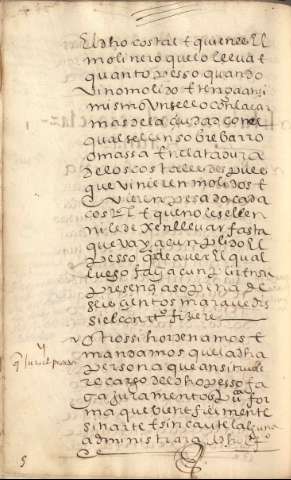 El dho costal E quien es El
molinero que lo lleva E
quanto pesso quando
vino molido E tenga ansi
mismo Un sello con las ar
mas de la ciudad con el
qual selle en so bre barro
o massa En la tadura
de los costales des pues
que vinieren molidos E
pesado cada
costal E que no le sellen
ni le dexen llevar fasta
que vaya cunplido El
pesso que a de aver El qual
luego faga cunplir En su
presençia so pena de
seis cientos maravedis
si el contrº fiziere
y
q juren el pesador
Otrossi hordenamos E
mandamos que la dha
persona que ansi tuviere
cargo del dho pesso fa
ga juramento En for
ma que bien E fielmente
sin arte E sin cautela alguna
administrara